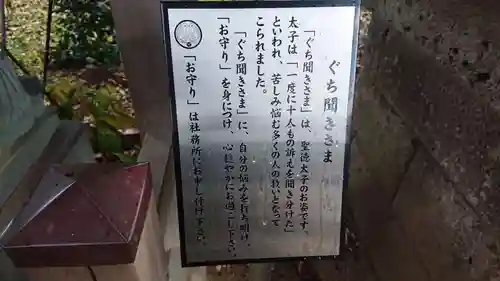 ぐち聞きさま
「ぐち聞きさま」は、聖徳太子のお姿です。
太子は「一度に十人もの訴えを聞き分けた」
といわれ、苦しみ悩む多くの人の救いとなって
こられました。
「ぐち聞きさま」に、自分の悩みを打ち明け、
「お守り」を身につけ、心穏やかにお過ごし下さい。
「お守り」は社務所にお申し付け下さい。